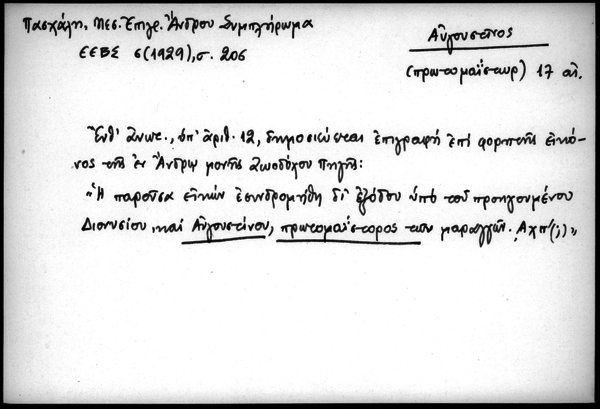 Πασχάλη, Μεσ. Ἐπιγρ. Ἄνδρου Συμπλήρωμα
ΕΕΒΣ 6(1929), σ. 206
Αὐγουστῖνος
(πρωτομαΐστωρ) 17 αἰ.
Ἔνθ' ἀνωτ., ὑπ' ἀριθ. 12, δημοσιεύεται ἐπιγραφή ἐπί φορητῆς εἰκό-
νος τῆς ἐν Ἄνδρῳ μονῆς Ζωοδόχου Πηγῆς:
"Ἡ παροῦσα εἰκών ἐσυνδρομήθη δι' ἐξόδου ὑπό τοῦ προηγουμένου
Διονυσίου καί Αὐγουστίνου, πρωτομαΐστορος τῶν μαραγγῶν. Αχπ'(;)"